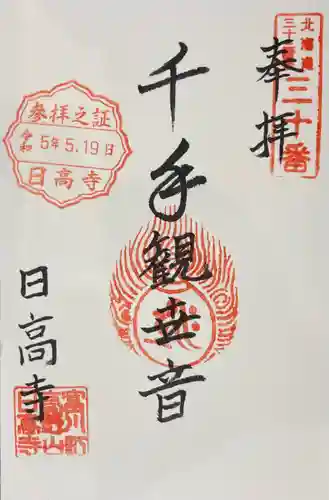 北海道
三十三番
三十番
奉拝
千手観世音
參拝之証
令和 5年5.19日
日高寺
日高寺